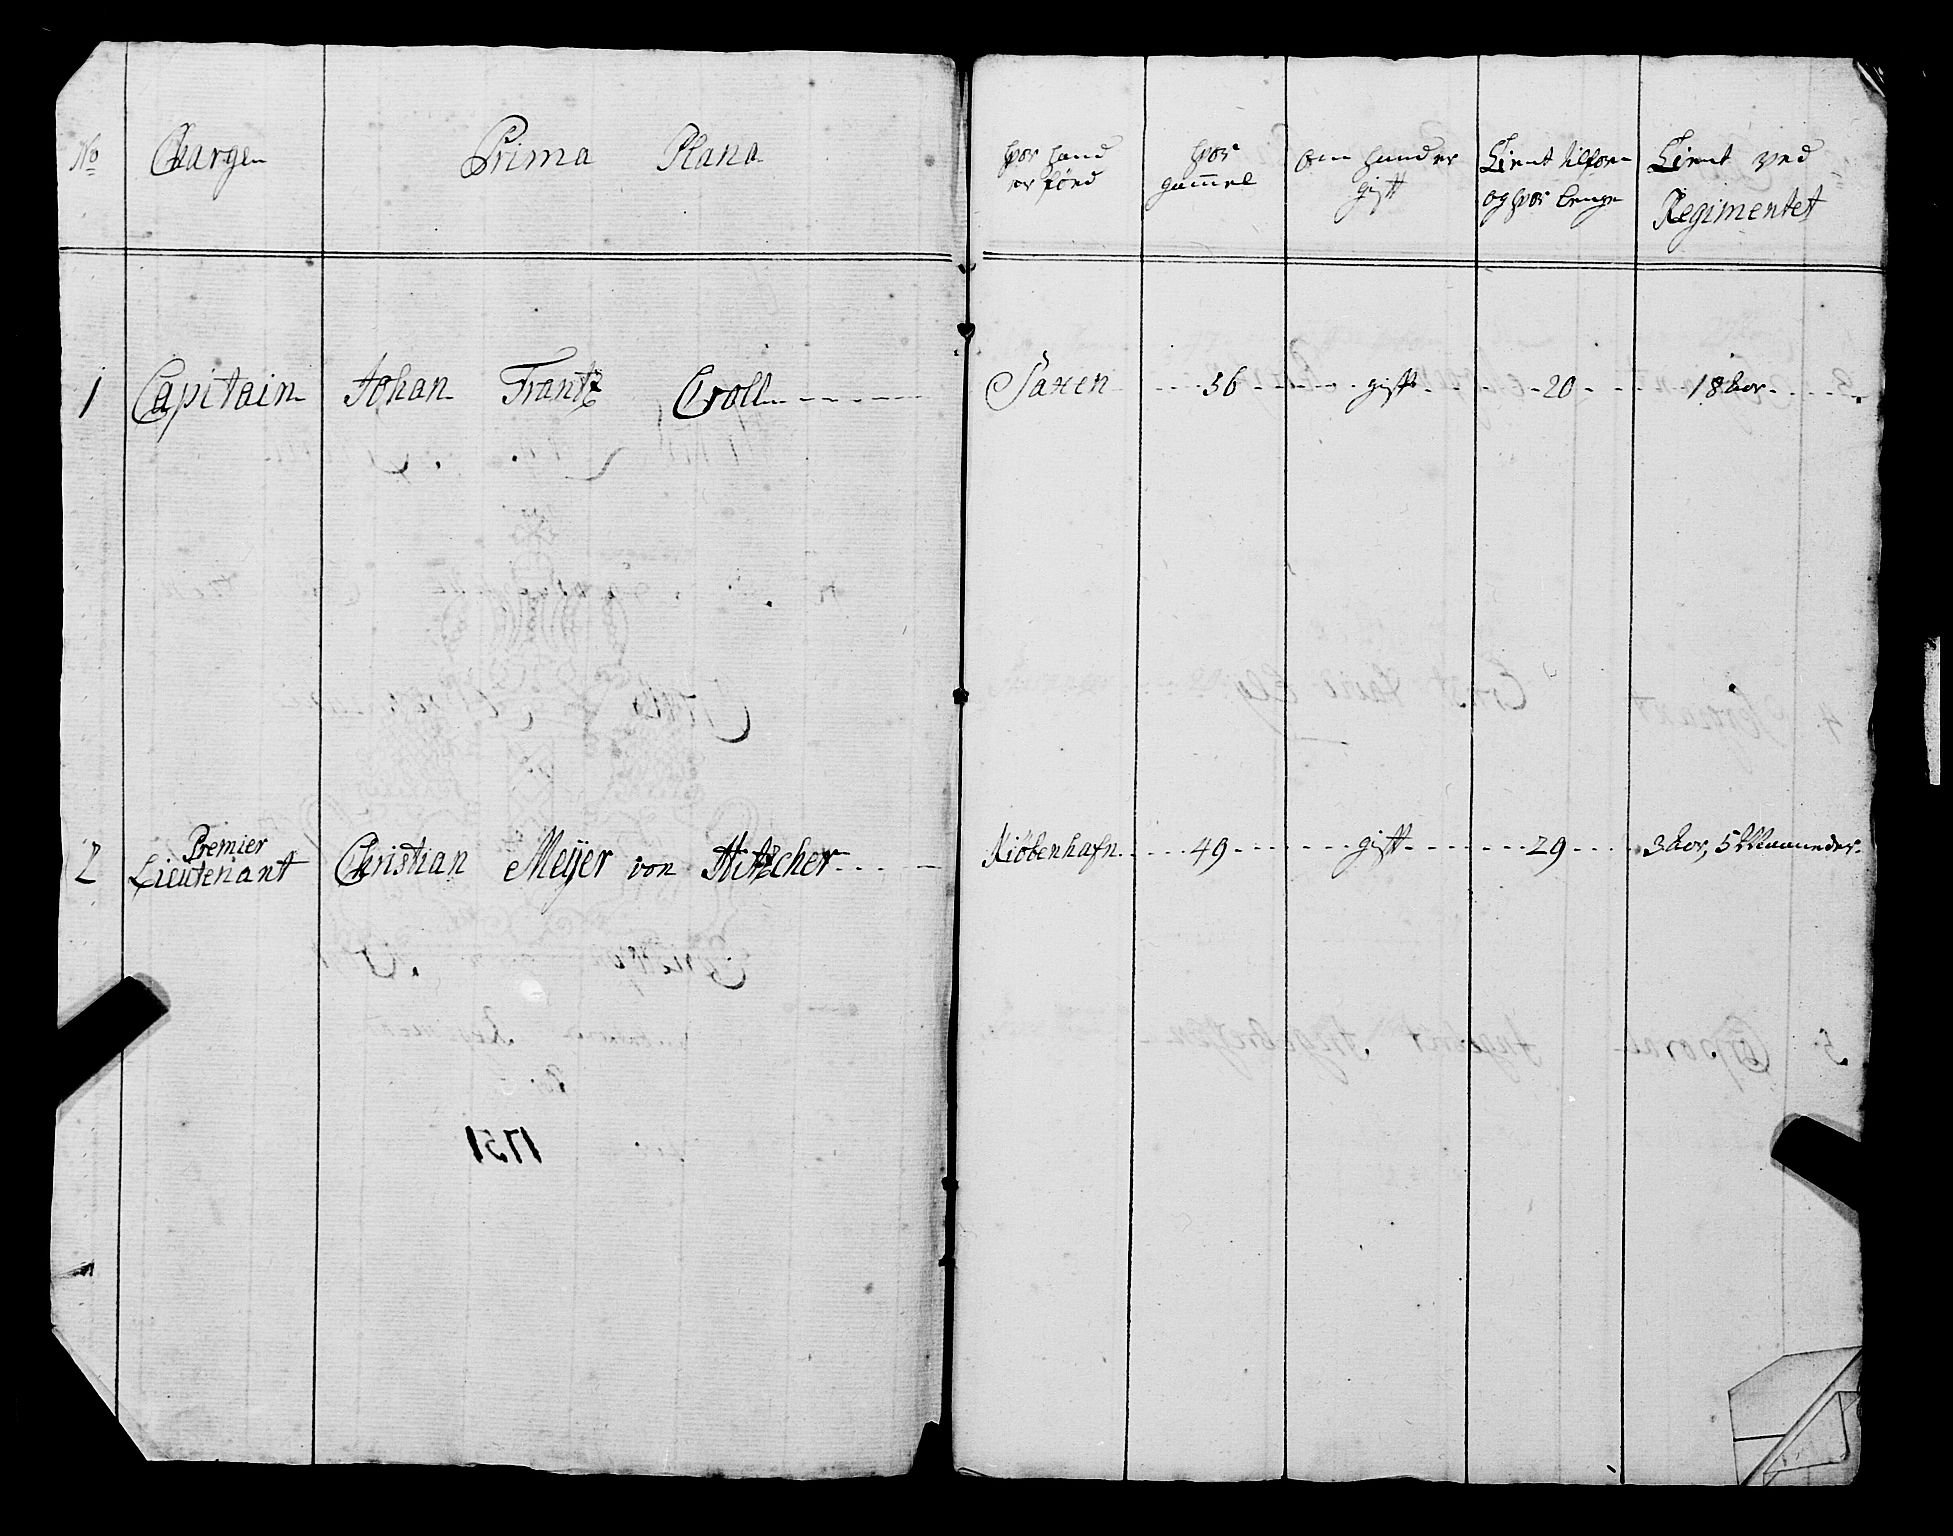 No Chargen Prima Plana hvor hand er fönd hvor gammel om hand er gift Tient tilforn og hvor lenge Tient ved Regimentet
1 Capitain Johan Frantz Croll Saxen 56 gift 20 18 Aar
2 Premier Lieutenant Christian Meijer von Hitscher Kiöbenhafn 49 gift 29 3 Aar, 5 Maaneder
1751